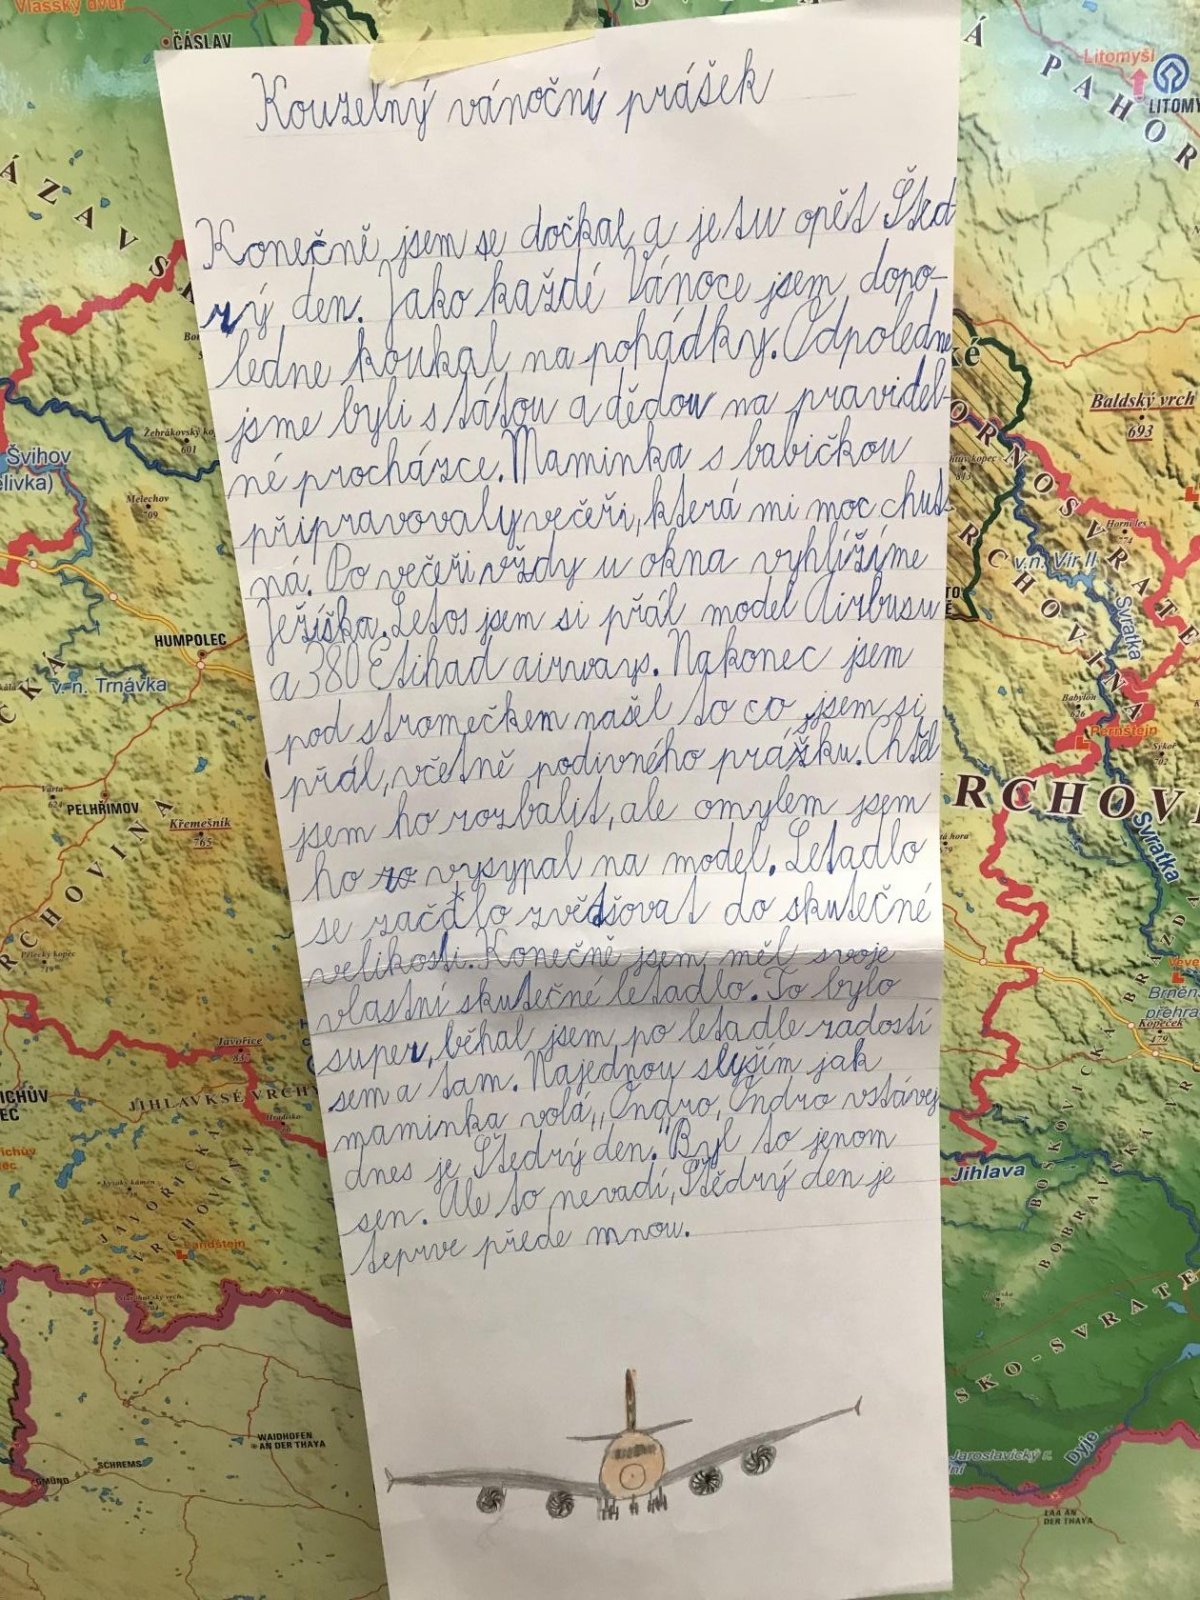 Kouzelný vánoční prášek
Konečně jsem se dočkal a je tu opět Šted-
rý den. Jako každé Vánoce jsem dopo-
ledne koukal na pohádky. Odpoledne
jsme byli s tátou a dědou na pravidel-
né procházce. Maminka s babičkou
připravovaly večeři, která mi moc chut-
ná. Po večeři vždy u okna vyhlížíme
Ježíška. Letos jsem si přál model Airbusu
a 380 Etihad airways. Nakonec jsem
pod stromečkem našel to co jsem si
přál, včetně podivného prášku. Chtěl
jsem ho rozbalit, ale omylem jsem
ho vysypal na model. Letadlo
se začalo zvětšovat do skutečné
velikosti. Konečně jsem měl svoje
vlastní skutečné letadlo. To bylo
super, běhal jsem po letadle radostí
sem a tam. Najednou slyším jak
maminka volá „Ondro, Ondro vstávej
dnes je Štedrý den.“ Byl to jenom
sen. Ale to nevadí, Štědrý den je
teprve přede mnou.
ČÁSLAV
Litomyšl
LITOMY
PAHOR
ÁZAV
Baldský vrch
693
Švihov
Melechov
709
HUMPOLEC
v. n. Trnávka
v.n. Vír II
Svratka
PELHŘIMOV
Křemešník
765
Pernštejn
RCHOV
Svratka
RCHOVINA
Javořice
837
JIHLAVSKÉ VRCHY
JAVOŘICKÁ
VRCHOVINA
Landštejn
Kopeček
479
Jihlava
BOBRAV
SKO-SVRATE
WAIDHOFEN
AN DER THAYA
SCHREMS
GMÜND
Jaroslavický r.
Dyje
LAA AN
DER THAYA